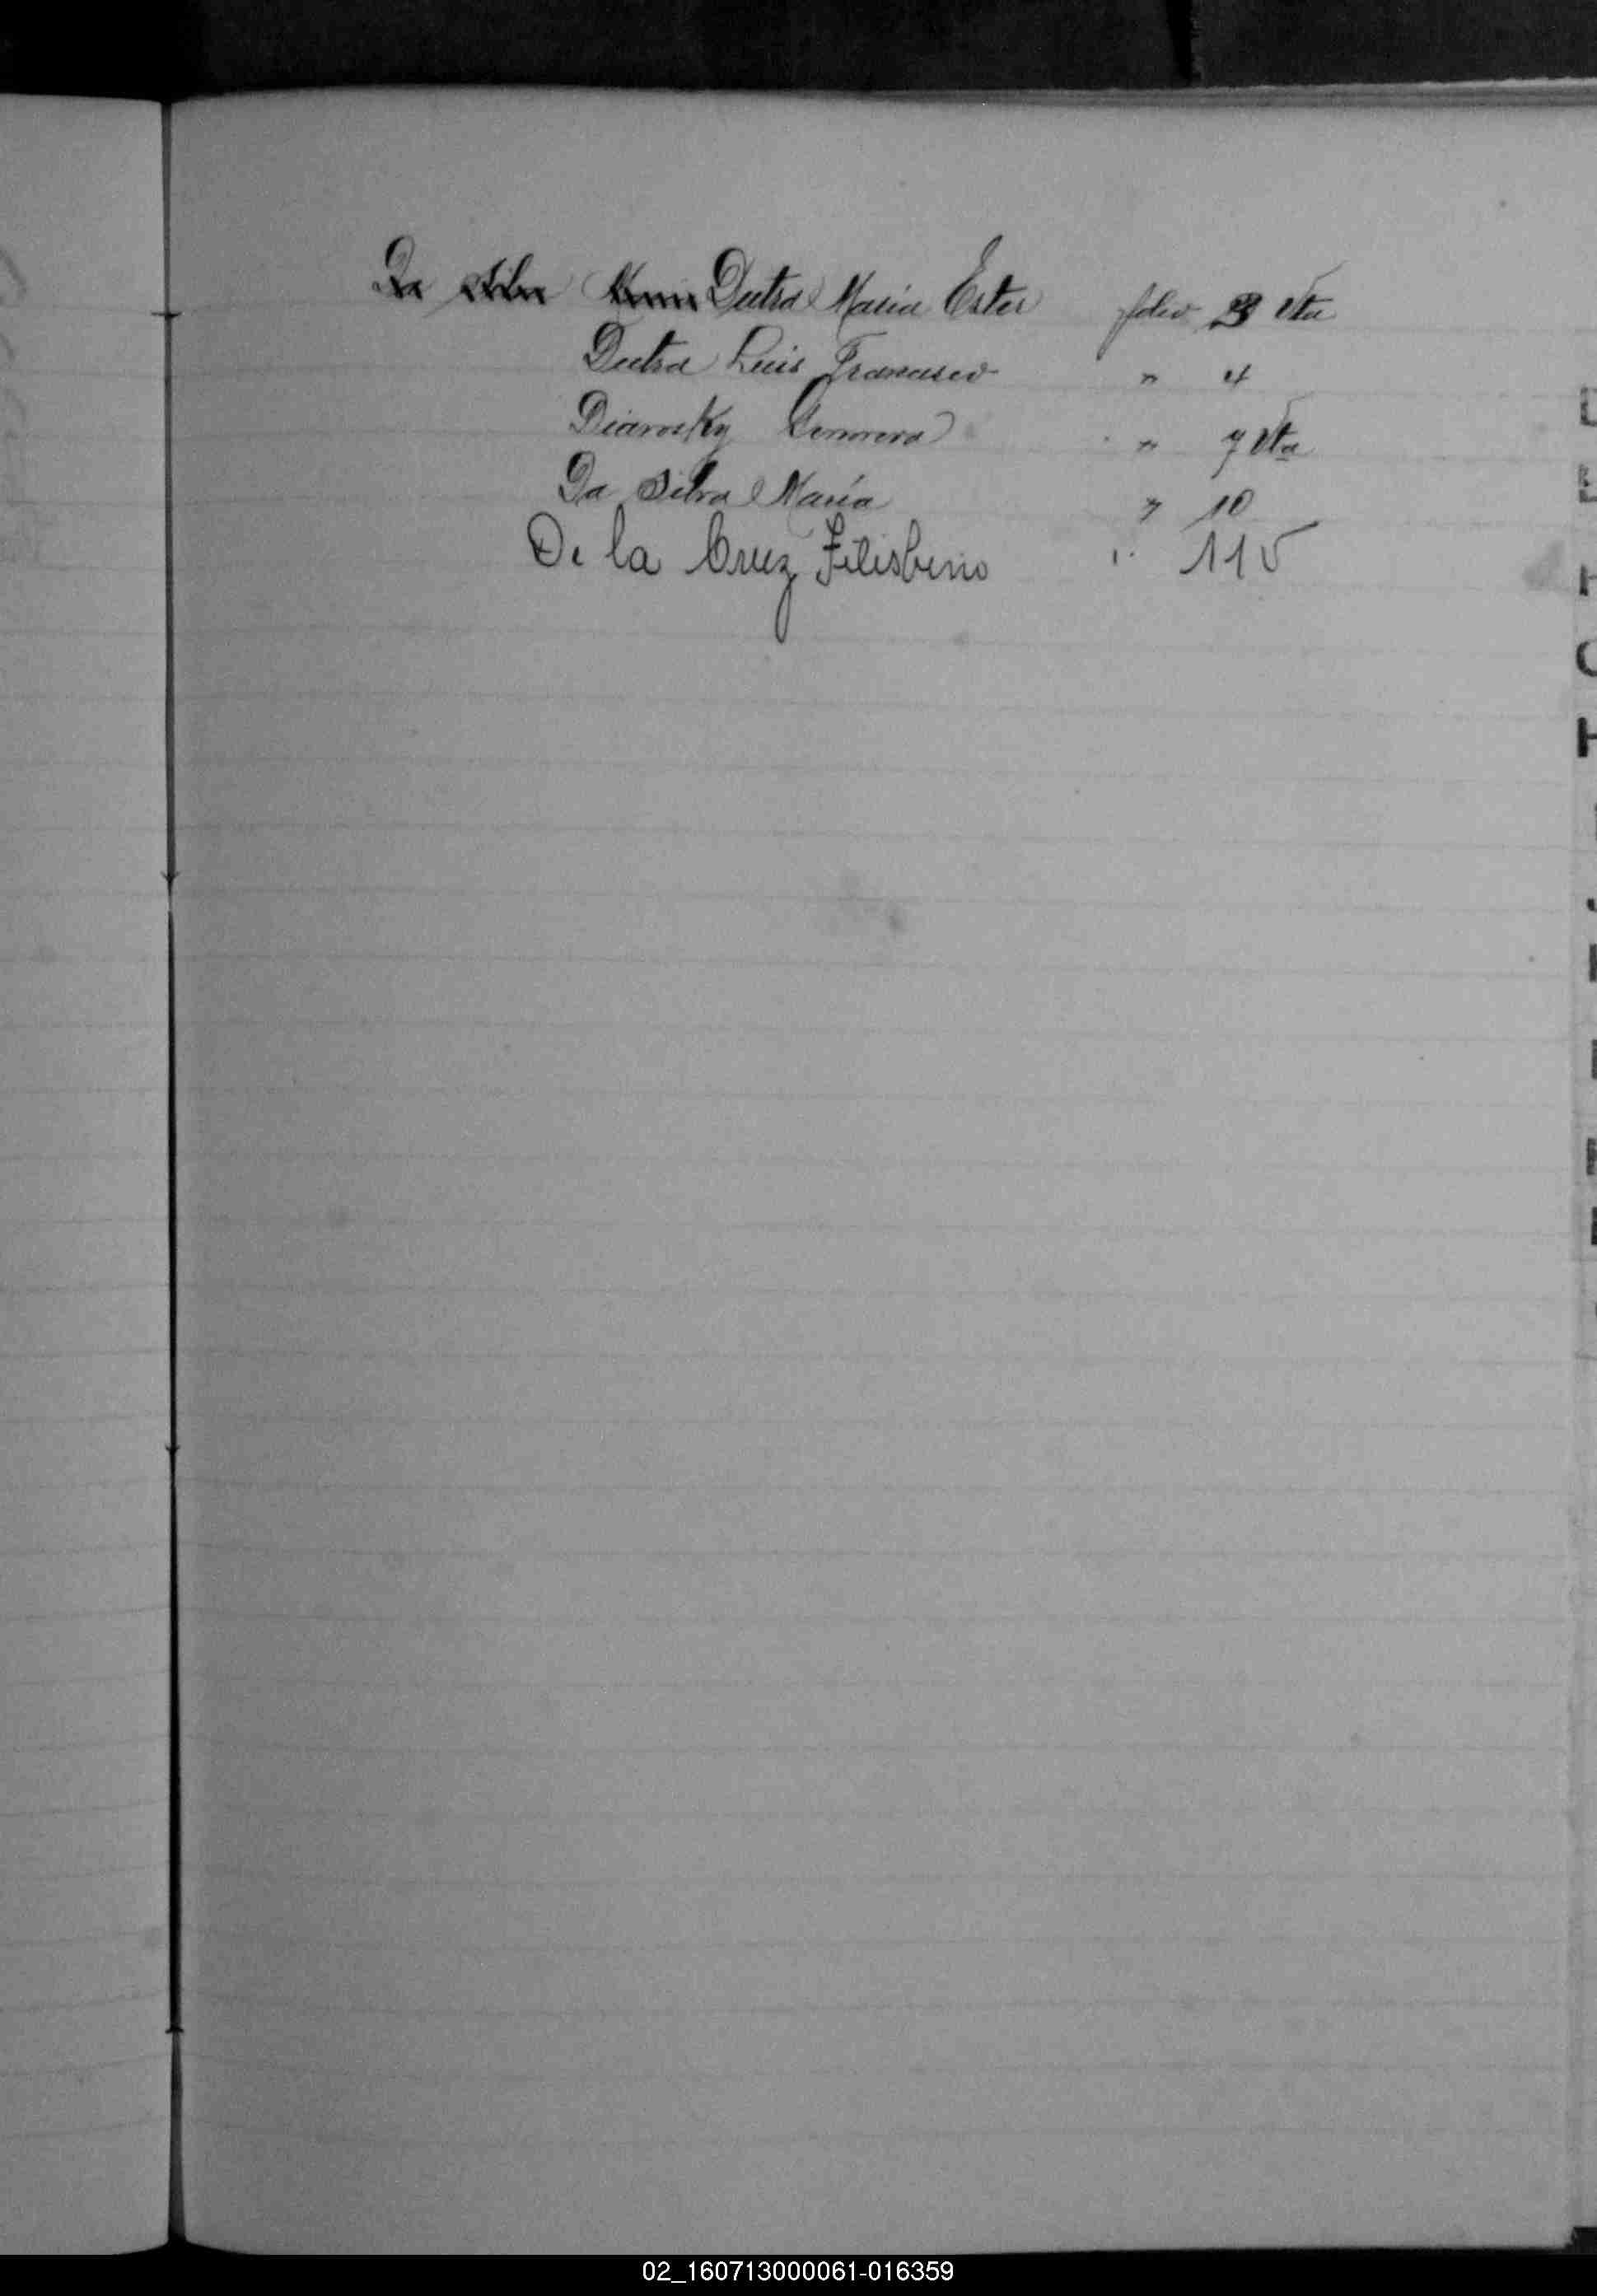 Da Silva María Dutra María Ester folio 3 Vta
Dutra Luis Francisco " 4
Diarosky Genoveva " 7 Vta
Da Silva María " 10
De la Cruz Filisbino " 11 v
D
E
H
02_160713000061-016359